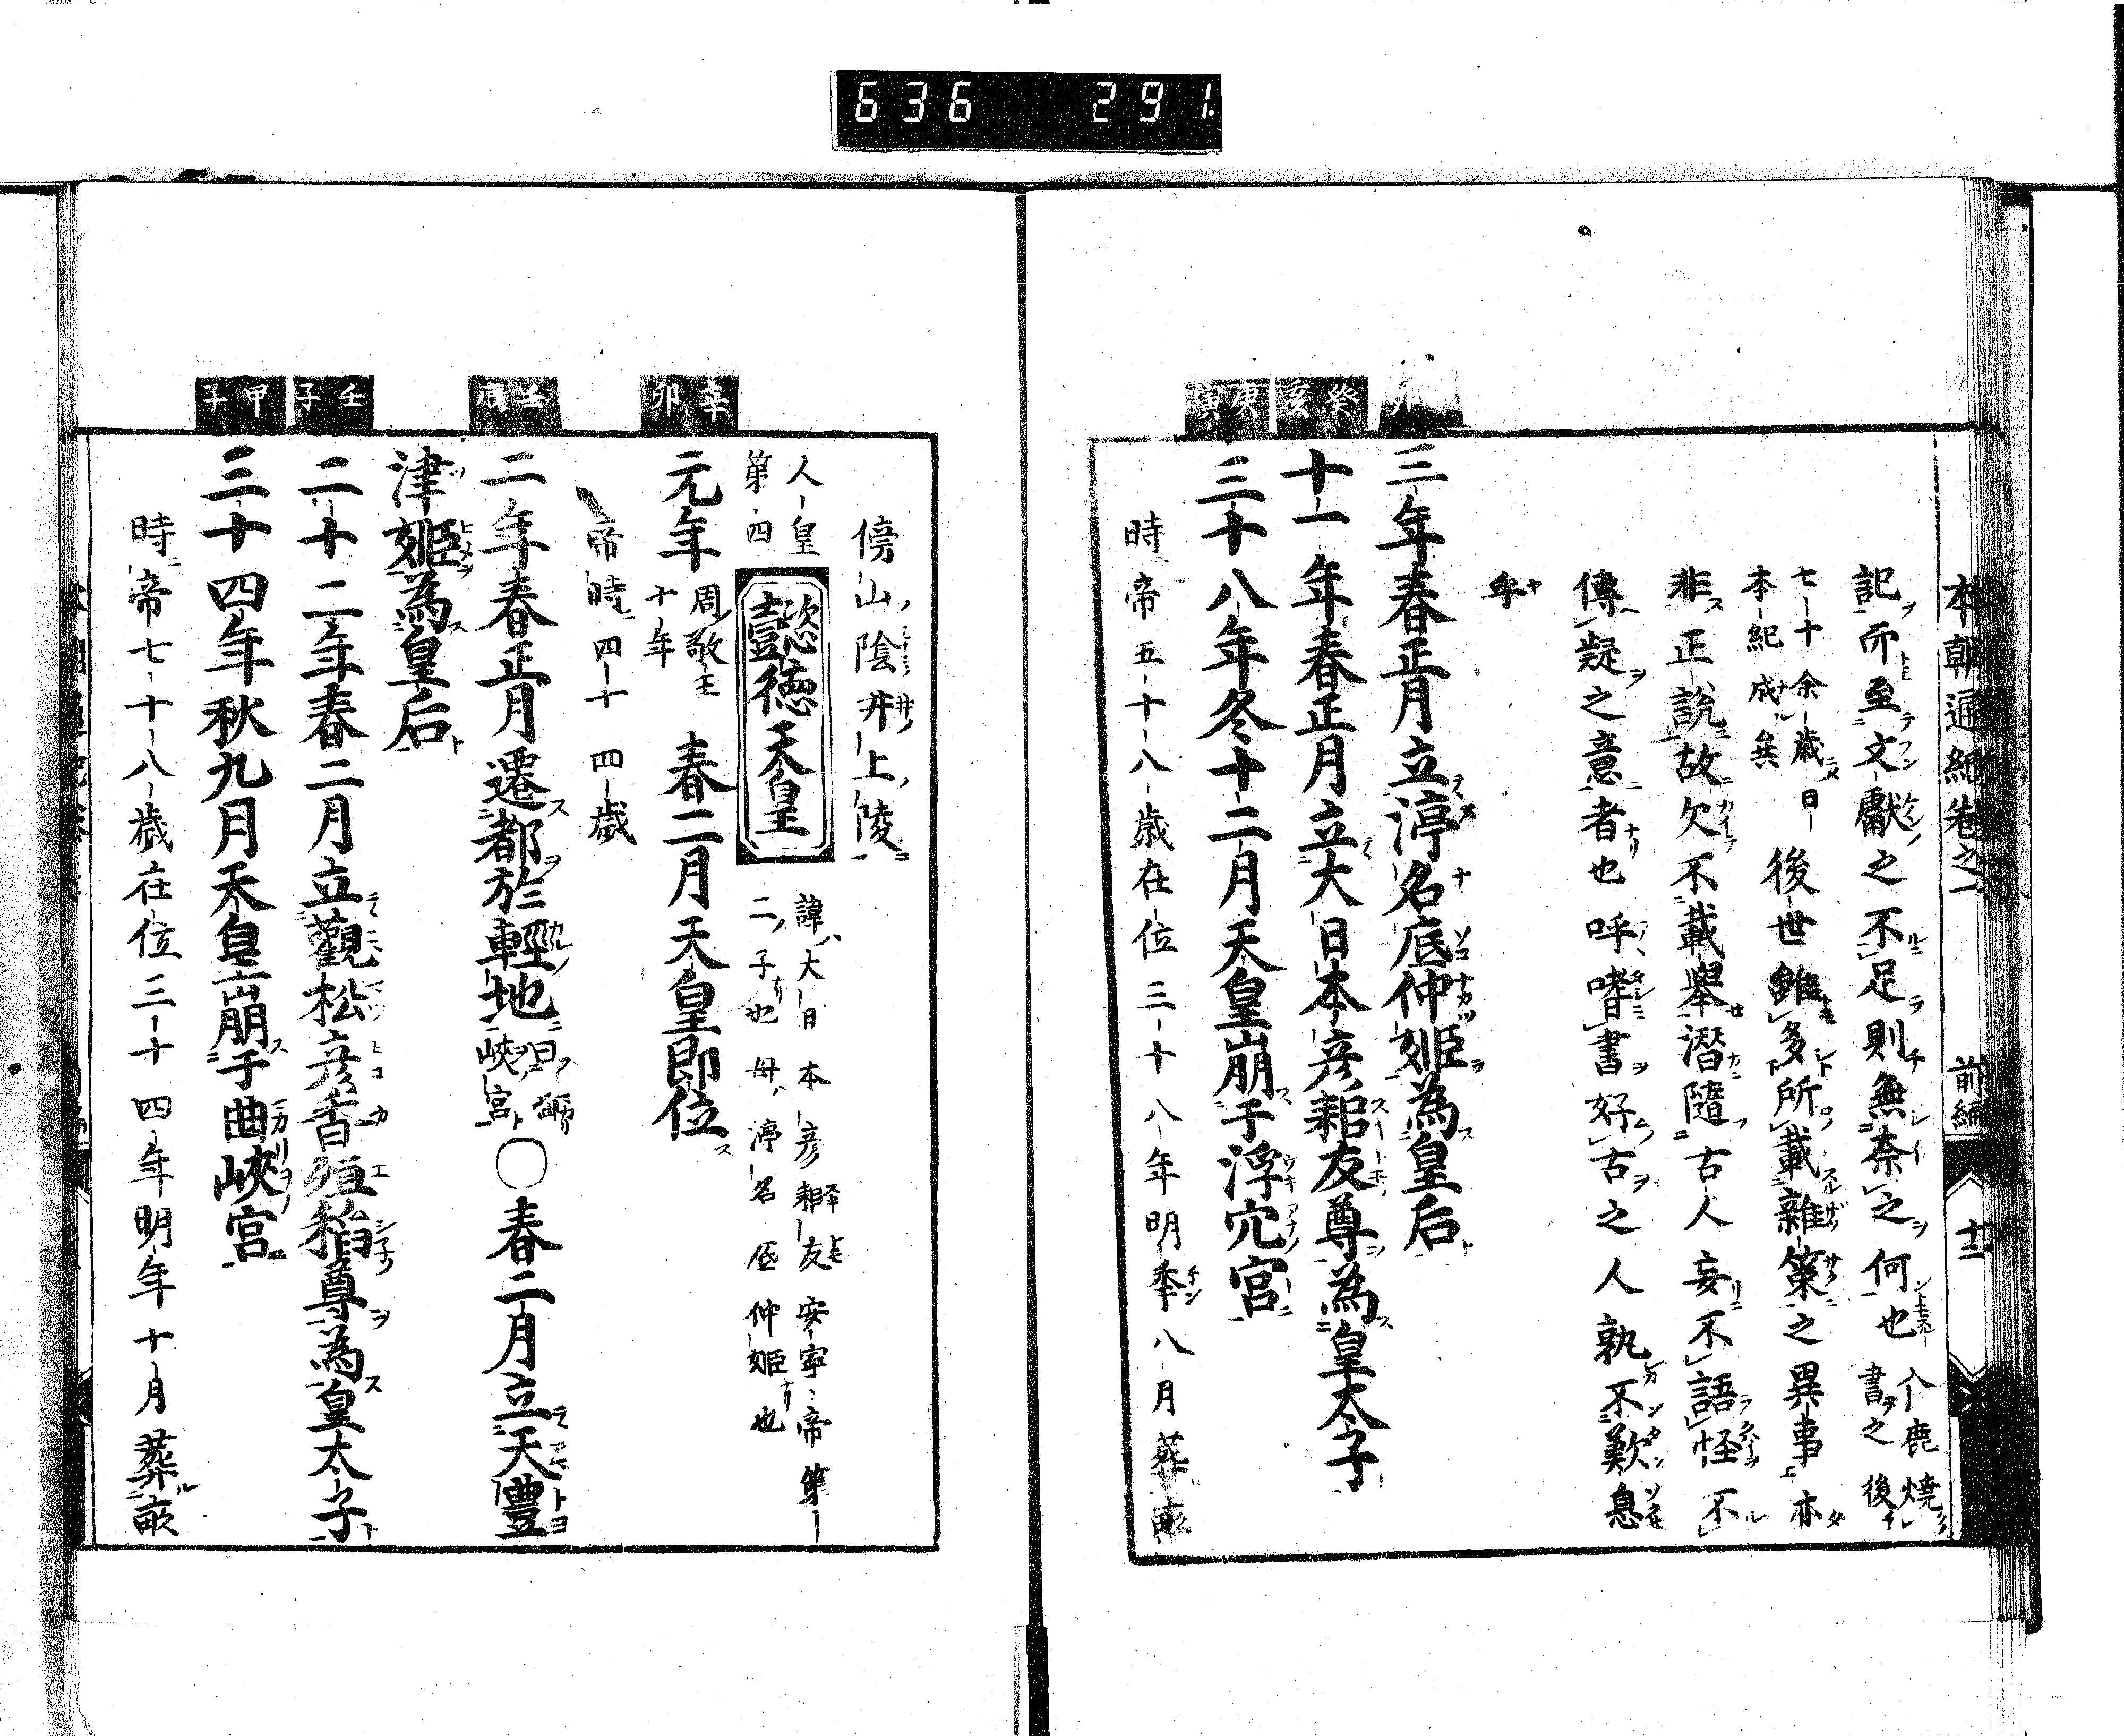 636 291
本朝通紀卷之一 前編 十二
記而至文獻之不足則無奈之何也
入鹿燒書之後
七十余歲日本紀成矣
後世雖多所載雜策之異事亦
非正說故欠不載舉潜隨古人妄不語怪不
傳疑之意者也呼嗜書好古之人孰不歎息
乎
卯
三年春正月立渟名底仲姬為皇后
癸亥
十一年春正月立大日本彥耜友尊為皇太子
庚寅
三十八年冬十二月天皇崩于浮穴宮
時帝五十八歲在位三十八年明季八月葬畝
傍山陰井上陵
人皇第四
懿德天皇
諱大日本彥耜友安寧帝第二子也母渟名底仲姬也
辛卯
元年
周敬王十年
春二月天皇即位
帝時四十四歲
壬辰
二年春正月遷都於輕地
曰曲峽宮
○春二月立天豐
津姬為皇后
壬子
二十二年春二月立觀松彥香殖稻尊為皇太子
甲子
三十四年秋九月天皇崩于曲峽宮
時帝七十八歲在位三十四年明年十月葬畝